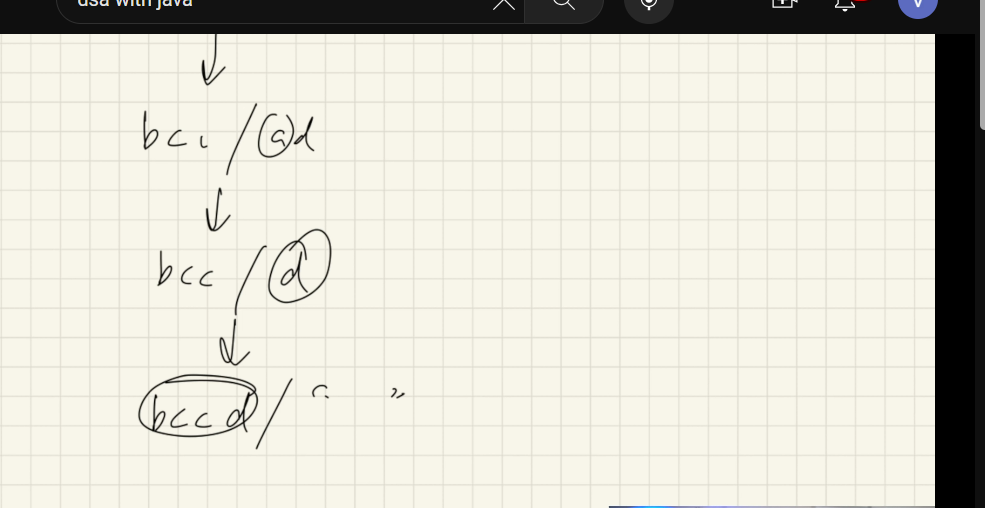 dsa with java
V
bcc / ad
bcc / d
bccd / “ ”